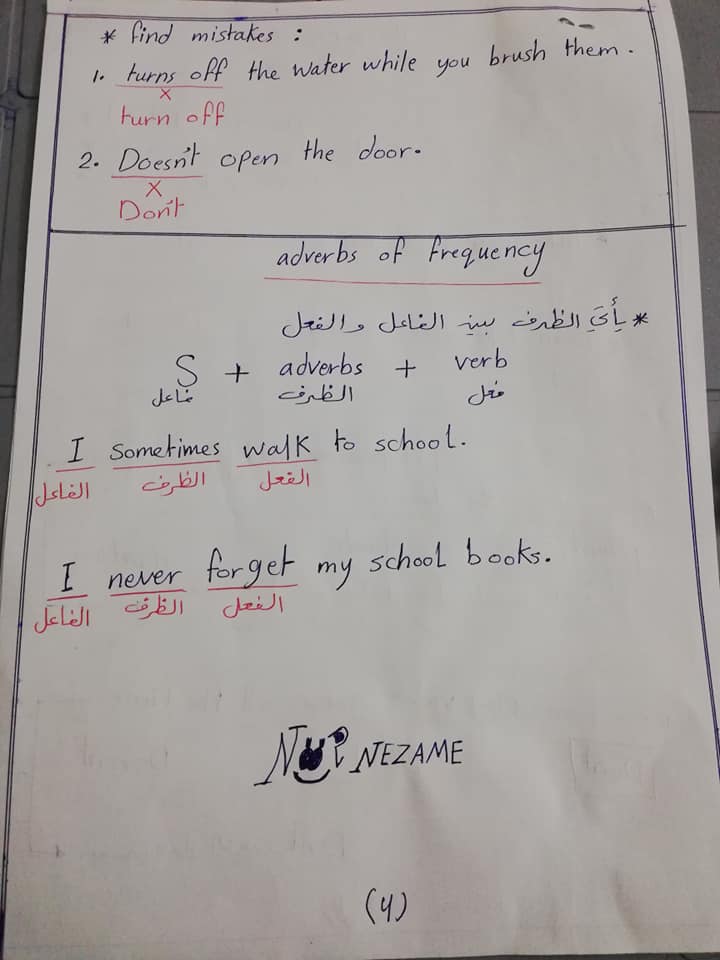 * find mistakes :
1. turns off the water while you brush them.
x
turn off
2. Doesn't open the door.
X
Don't
adverbs of frequency
* يأتي الظرف بين الفاعل والفعل
S + adverbs + verb
فاعل الظرف فعل
I sometimes walk to school.
الفاعل الظرف الفعل
I never forget my school books.
الفاعل الظرف الفعل
NUR NEZAME
(4)